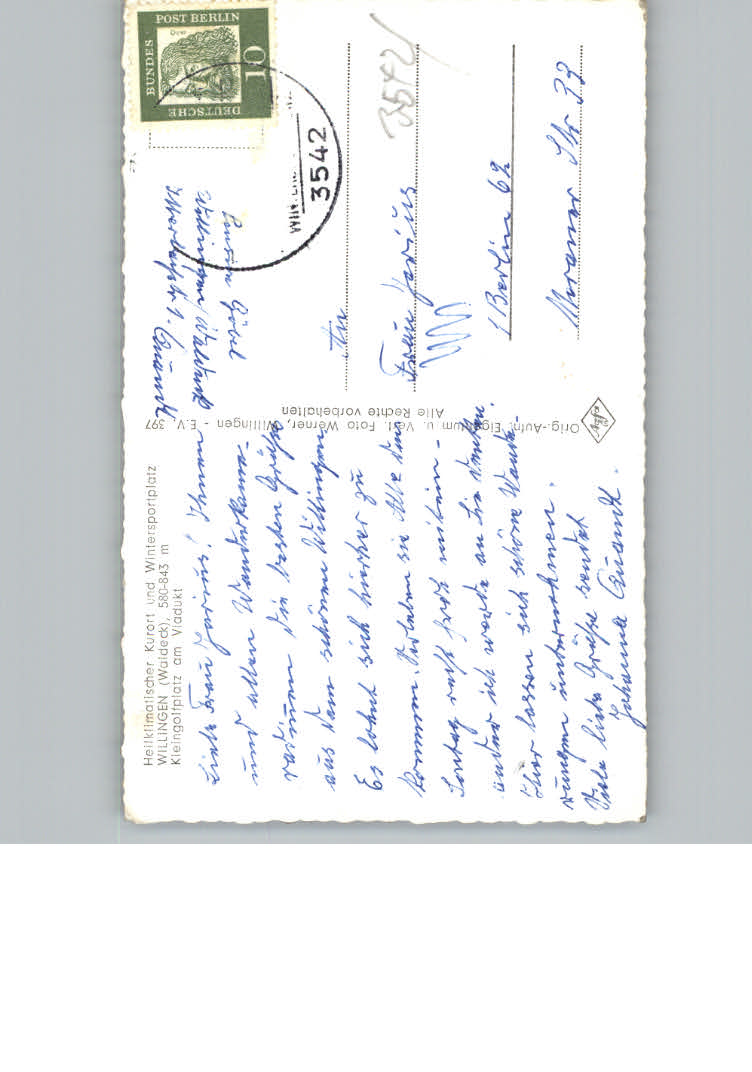 Heilklimatischer Kurort und Wintersportplatz
WILLINGEN (Waldeck), 580-843 m
Kleingolfplatz am Viadukt
Liebe Frau Harius! Ihnen
und allen Wanderkame-
radinnen die besten Grüße
aus dem schönen Willingen
Es lohnt sich hierher zu
kommen. Verleben sie Alle den
Sontag recht froh mitein-
ander ich werde an Sie denken.
Hier lassen sich schöne Wande-
rungen unternehmen.
Viele liebe Grüße sendet
Johanna Quandt.
Orig.-Aufn. Eigentum u. Verl. Foto Werner, Willingen - E.V. 397
Alle Rechte vorbehalten
Agfa
Quandt
Willingen/Waldeck
DEUTSCHE
BUNDES
POST BERLIN
Dürer
10
3542
3542
An
Frau Harius
1 Berlin 62
Meraner Str 33